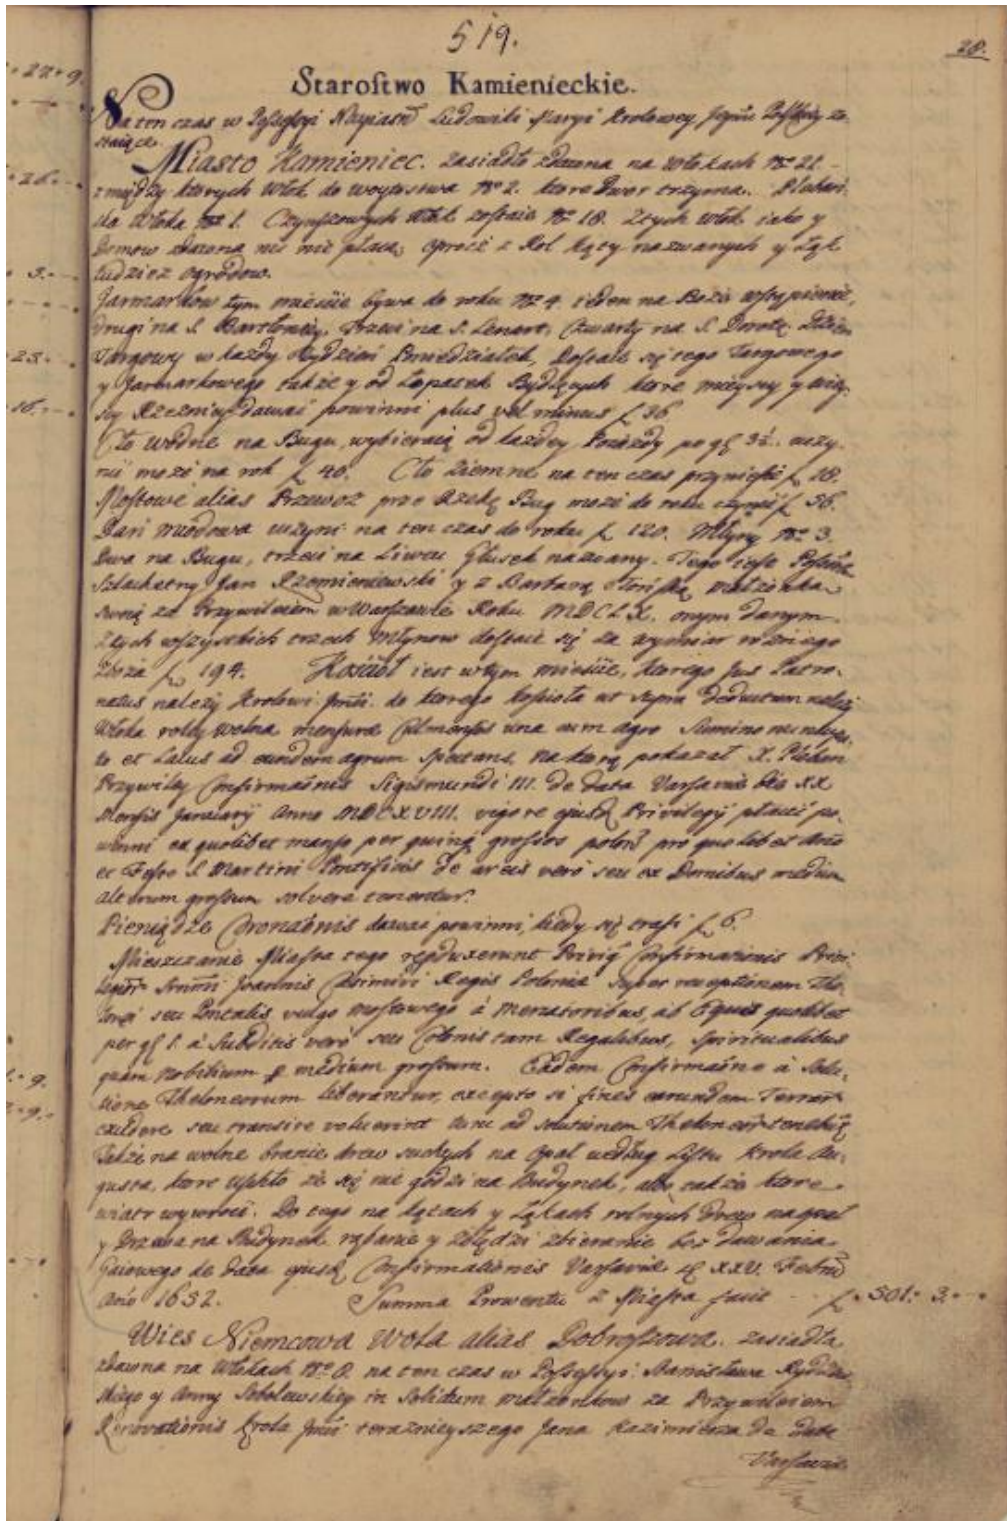 519.
28.
Starostwo Kamienieckie.
Na ten czas w Possessyi Ludowiki Maryi Krolowey Polskiey zo
staiące.
Miasto Kamieniec. zasiadło zdawna na włokach No 21
z między ktorych włok do woytostwa No 2. ktore Dwor trzyma. Plebań
ska włoka No 1. Czynszowych włok zostaie No 18. Ztych włok iako y
Domow zdawna nic nie płacą, oprocz z Rol Kąty nazwanych y Łąk
tudziesz ogrodow.
Jarmarkow w tym mieście bywa do roku No 4. ieden na Boże wstąpienie,
drugi na S. Bartłomiey, trzeci na S. Lenart, czwarty na S. Dorotę. Dzień
Targowy w każdy Tydzień Poniedziałek, Dostaie się tego Targowego
y Jarmarkowego także y od Łopatek Bydlęcych ktore mieyscy y wiey
scy Rzeznicy dawać powinni plus vel minus f 36
Cło wodne na Bugu, wybieraią od każdey po gł 3½. uczy-
nić może na rok f 40. Cło ziemne na ten czas przyniesło f 18.
Mostowe alias Przewoz przez Rzekę Bug może do roku czynić f 56.
Dań miodowa uczyni na ten czas do roku f 120. Młyny No 3.
Dwa na Bugu, trzeci na Liwcu Głusek nazwany. Tego iest
Szlachetny Jan Rzemieniewski y z Barbarą małżonką
swoią za Przywileiem w Warszawie Roku MDCLX. onym danym.
Ztych wszystkich trzech Młynow dostaie się za wymiar roznego
Zboża f 194. Kościoł iest w tym mieście, ktorego Jus Patro-
natus należy Krolowi Jmći. do ktorego kościoła ut supra deductum należy
Włoka roley wolna mensura Culmensis una cum agro
et Lacus ad eundem agrum spectans. na ktorą pokazał X. Pleban
Przywiley Confirmationis Sigismundi III. de data Varsavia die XX
Mensis January Anno MDCXVIII. vigore ejusd Privilegij płacić po-
winni ex quolibet manso per quinq grossos polon pro quolibet Anno
ex Festo S. Martini Pontificis de areis vero seu ex Domibus medium
alterum grossum solvere tenentur.
Pieniądze Coronationis dawać powinni, kiedy się trafi f 6.
Mieszczanie Miasta tego reproduxerunt Confirmationis Privi-
legior Joannis Casimiri Regis Poloniae super receptionem Thelo-
nei seu Pontalis vulgo mostowego a Mercatoribus, ab Equis quolibet
per gł 1. a Subditis vero seu Colonis tam Regalibus, Spiritualibus
quam Nobilium p medium grossum. Eadem Confirmatione a Solu-
tione Theloneorum liberantur, excepto si fines earundem Terrar
excedere seu transire voluerint tunc ad solutionem tenebit
Także na wolne branie drew suchych na Opał według Listu Krola Au-
gusta, ktore uschło że się nie godzi na Budynek, albo także ktore
wiatr wywroci. Do tego na Kątach y Łąkach rolnych drew na opał
y Drzewa na Budynek rąbanie y żołędzi zbieranie bez dawania
Gaiowego de data ejusd Confirmationis Varsavia XXV. Febru
Ano 1652. Summa Prowentu z Miasta facit f 501. 3.
Wies Niemcowa Wola alias Dobroszowa. zasiadła
zdawna na Włokach No 8. na ten czas w Possessyi Stanisława
skiego y Anny Sobolewskiey in Solidum małżonkow za Przywileiem
Renovationis Krola Jmći teraznieyszego Jana Kazimierza de Data
Varsavia